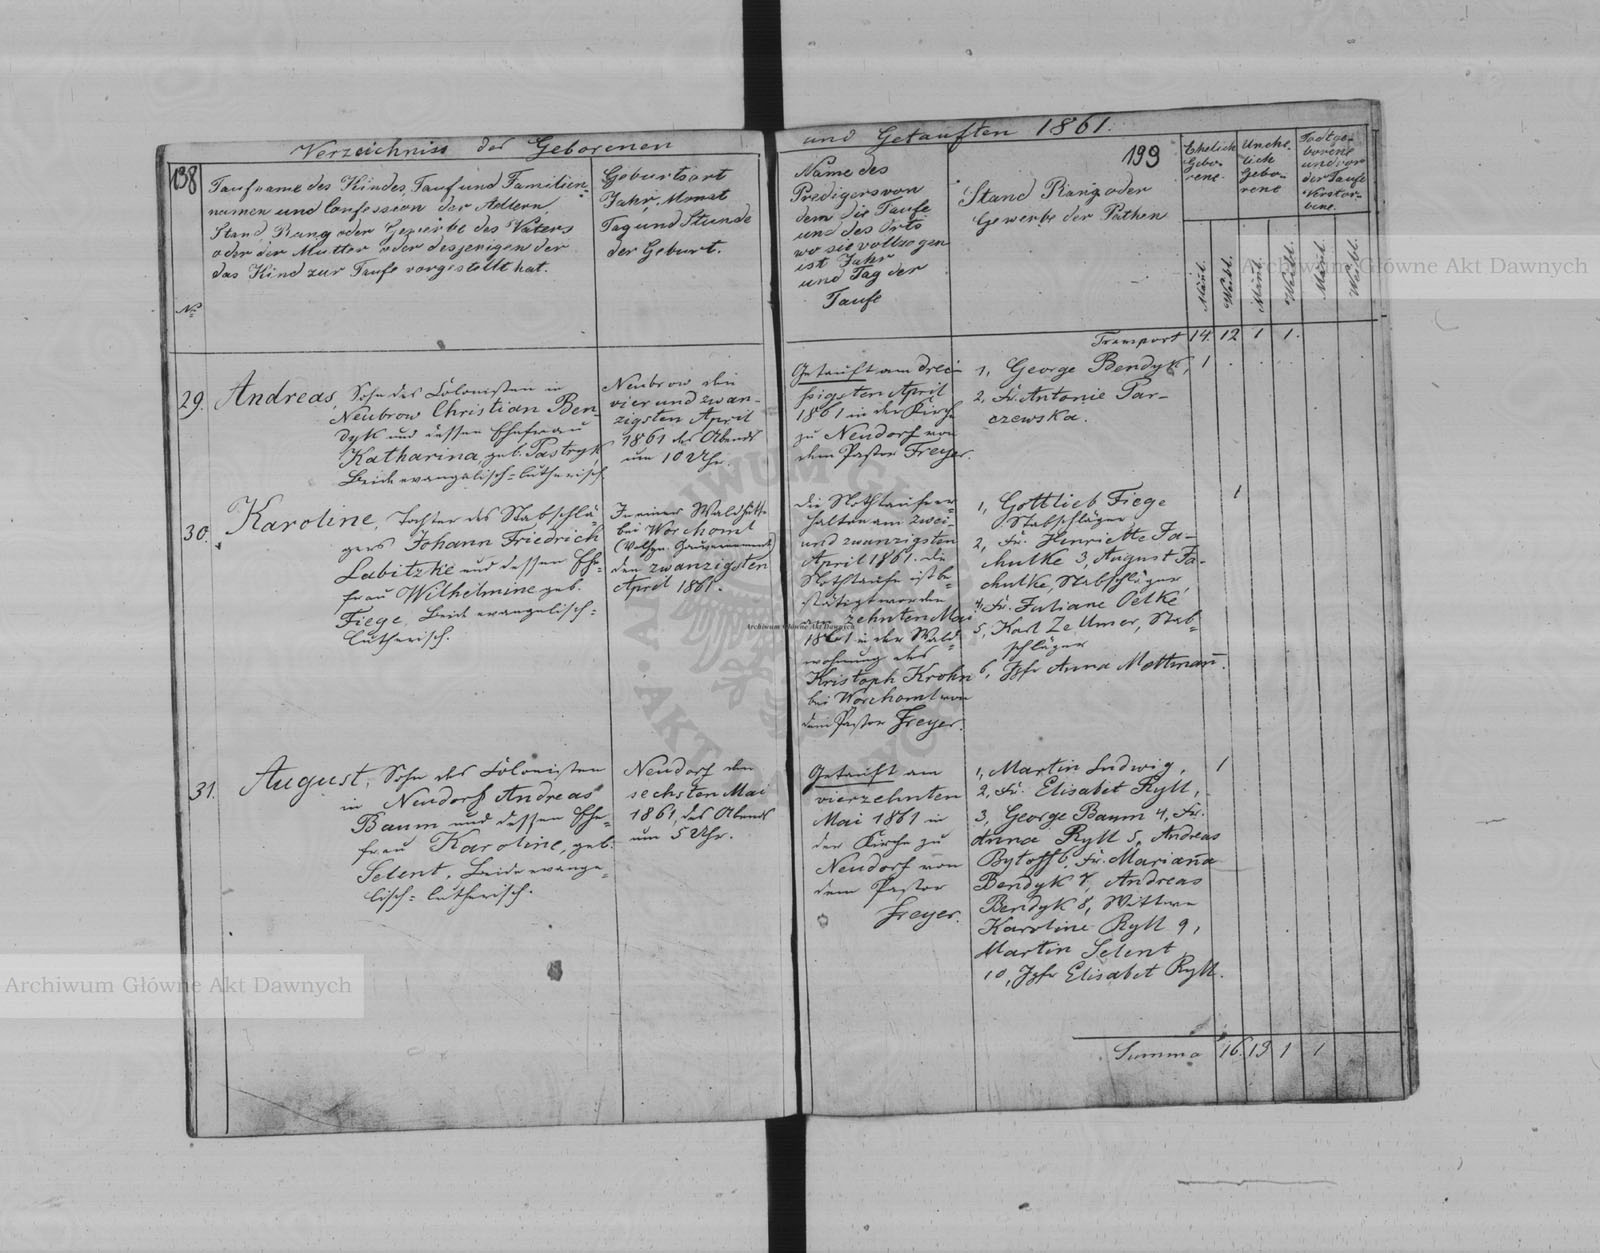 Verzeichniss der Geborenen
138
Taufname des Kindes, Tauf und Familien-
namen und Confession der Aeltern,
Stand Rang oder Gewerbe des Vaters
oder der Mutter oder desjenigen der
das Kind zur Taufe vorgestellt hat.
No
Geburtsort
Jahr, Monat
Tag und Stunde
der Geburt.
29.
Andreas, Sohn des Colonisten in
Neubrow Christian Ben-
dyk und dessen Ehefrau
Katharina, geb. Pastryk,
Beide evangelisch-lutherisch
Neubrow den
vier und zwan-
zigsten April
1861 des Abends
um 10 Uhr.
30.
Karoline, Tochter des Stabschlä-
gers Johann Friedrich
Labitzke und dessen Ehe-
frau Wilhelmine geb.
Fiege, Beide evangelisch-
lutherisch.
In einer Waldhütte
bei Worchoml
(Volhyn. Gouvernement)
den zwanzigsten
April 1861.
31.
August, Sohn des Colonisten
in Neudorf Andreas
Baum und dessen Ehe-
frau Karoline, geb.
Selent, Beide evange-
lisch-lutherisch.
Neudorf den
sechsten Mai
1861, des Abends
um 5 Uhr.
und Getauften 1861.
Name des
Predigers von
dem die Taufe
und des Orts
wo sie vollzogen
ist Jahr
und Tag der
Taufe
199
Stand Rang oder
Gewerbe der Pathen
Ehelich
Gebo-
rene.
Unehe-
lich
Gebo-
rene
Todtge-
borene
und vor
der Taufe
Verstor-
bene.
Mänl. Weibl. Mänl. Weibl. Mänl. Weibl.
Transport 14. 12 1 1.
Getauft am drei-
ssigsten April
1861 in der Kirche
zu Neudorf von
dem Pastor Freyer.
1, George Bendyk, 1
2, Fr. Antonie Par-
czewska.
Die Nothtaufe er-
halten am zwei-
und zwanzigsten
April 1861. Die
Nothtaufe ist be-
stätigt worden
am zehnten Mai
1861 in der Wald-
wohnung des
Kristoph Krohn
bei Worchoml von
dem Pastor Freyer.
1, Gottlieb Fiege 1
Stabschläger
2, Fr. Henriette Ja-
chulke 3, August Ja-
chulke, Stabschläger,
4, Fr. Juliane Oelke
5, Karl Zellmer, Stab-
schläger
6, Jgfr Anna Mottman̄.
Getauft am
vierzehnten
Mai 1861 in
der Kirche zu
Neudorf von
dem Pastor
Freyer.
1, Martin Ludwig, 1
2, Fr. Elisabet Ryll,
3, George Baum 4, Fr.
Anna Ryll 5, Andreas
Bytoff 6, Fr. Marian̄a
Bendyk 7, Andreas
Bendyk 8, Wittwe
Karoline Ryll 9,
Martin Selent
10, Jgfr Elisabet Ryll.
Summa 16. 13 1 1
Archiwum Główne Akt Dawnych
Archiwum Główne Akt Dawnych
Archiwum Główne Akt Dawnych